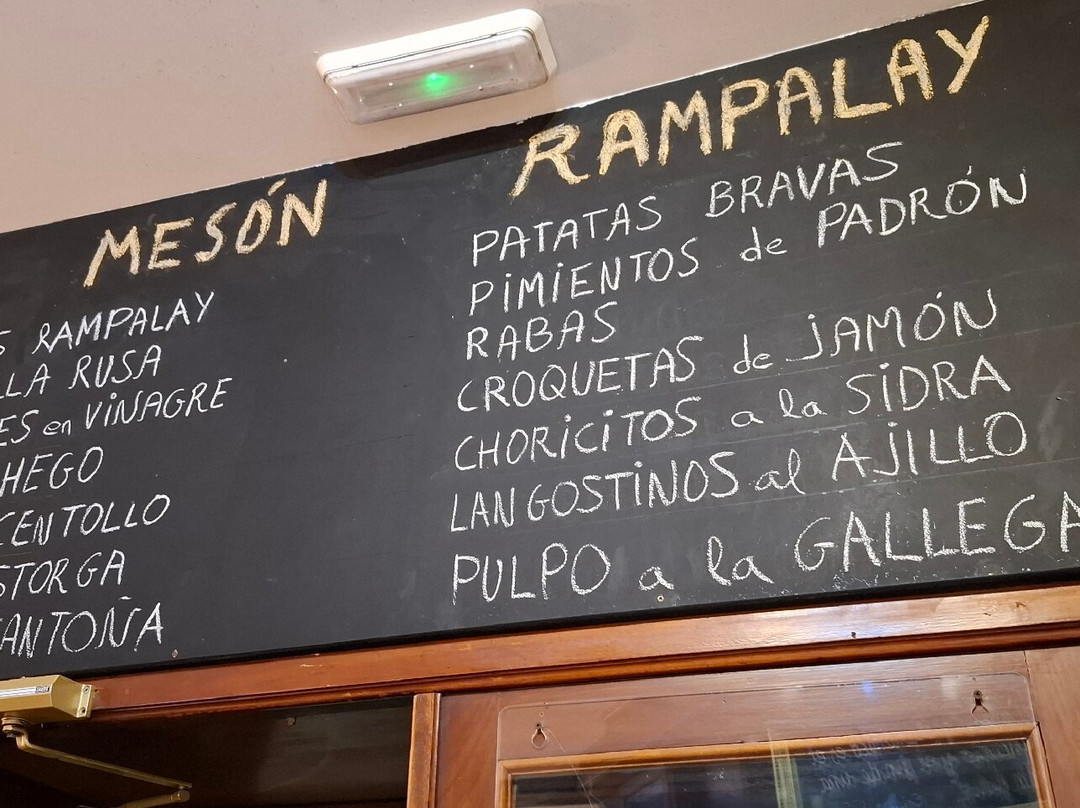 MESÓN RAMPALAY
S RAMPALAY
LLA RUSA
ES en ViNAGRE
HEGO
CENTOLLO
STORGA
ANTOÑA
PATATAS BRAVAS
PiMiENTOS de PADRÓN
RABAS
CROQUETAS de JAMÓN
CHORiCiTOS a la SiDRA
LANGOSTiNOS al AJiLLO
PULPO a la GALLEGA